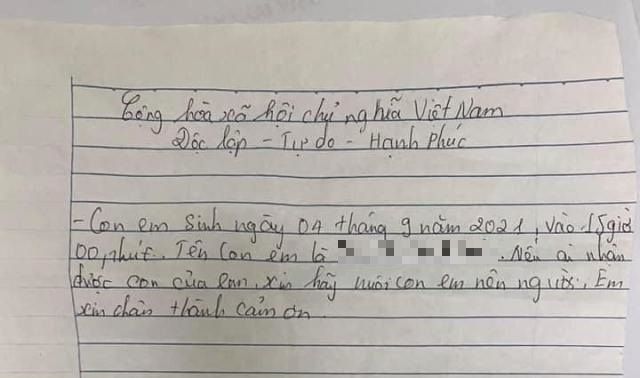 Cộng hòa xã hội chủ nghĩa Việt Nam
Độc lập - Tự do - Hạnh Phúc
- Con em sinh ngày 04 tháng 9 năm 2021, vào 15 giờ
00, phút. Tên con em là . Nếu ai nhận
được con của em, xin hãy nuôi con em nên người. Em
xin chân thành cảm ơn.